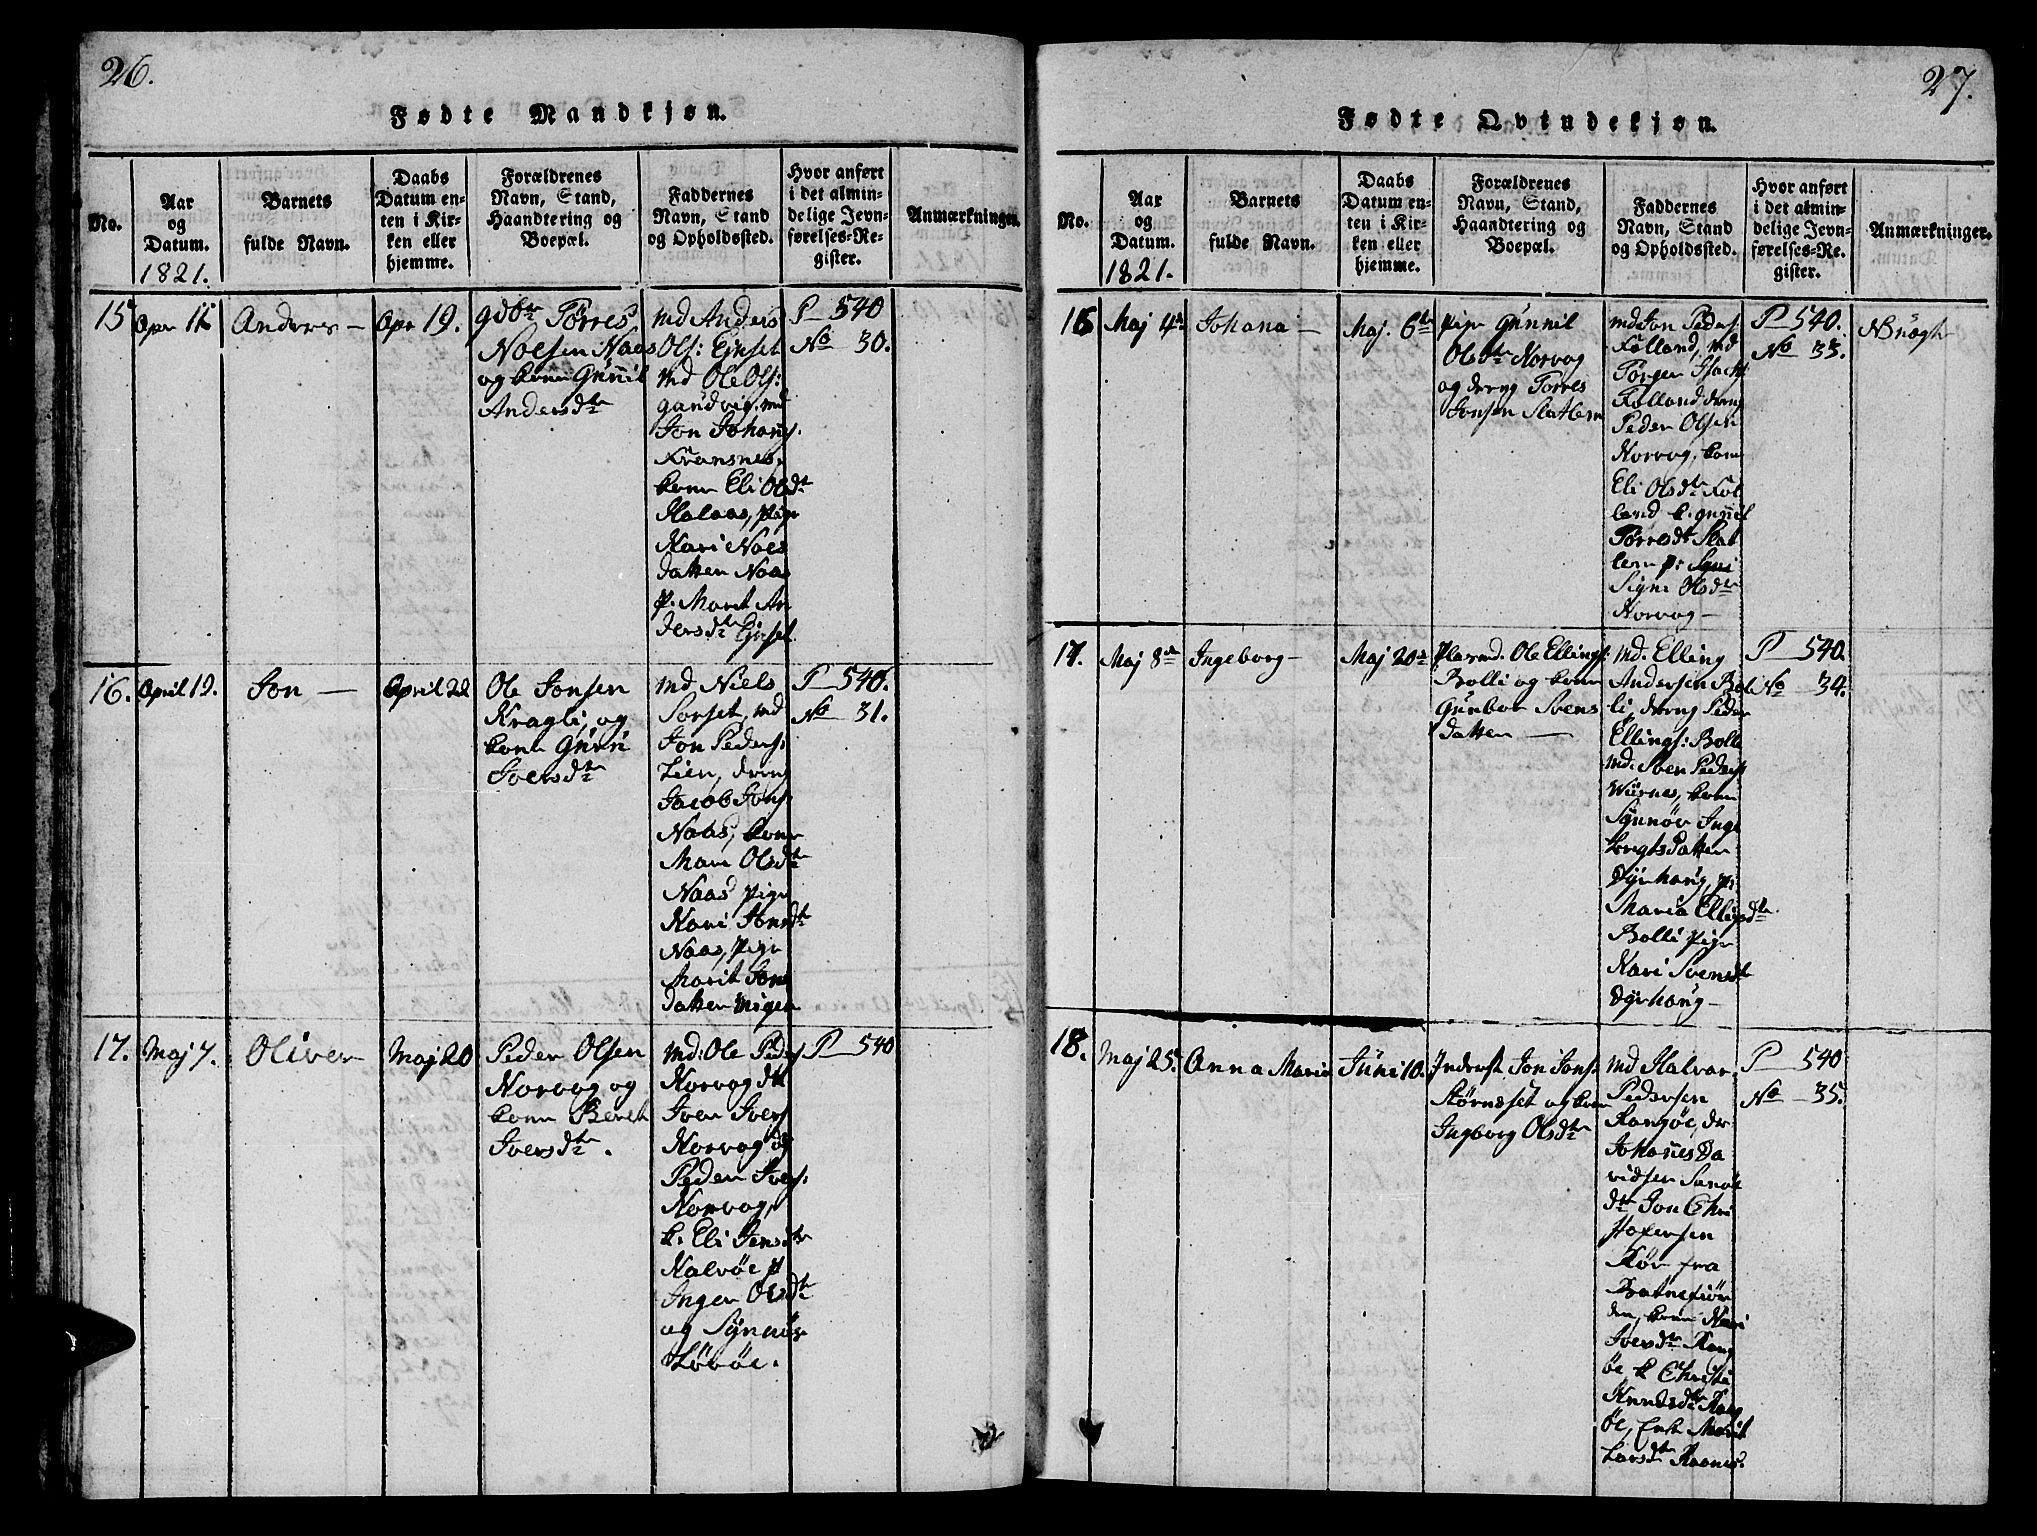 26.
Fødte Mandkjøn.
No.
Aar
og
Datum.
1821.
Barnets
fulde Navn.
Daabs
Datum en-
ten i Kir-
ken eller
hjemme.
Forældrenes
Navn, Stand,
Haandtering og
Boepæl.
Faddernes
Navn, Stand
og Opholdssted.
Hvor anført
i det almin-
delige Jevn-
førelses-Re-
gister.
Anmærkninger.
15
Apr 11
Anders -
Apr 19.
gdbr Tørres
Nielsen Naes
og kone Gunnil
Andersdtr
md Anders
Ols: Ejnset
md Ole Ols:
md
Jon Johans.
Kransnes,
kone Eli Olsdtr
Halaas, pige
Kari
datter Naas
p. Marit An
dersdtr Ejnset.
P 540
No 30.
16.
April 19.
Jon -
April 22
Ole Jonsen
Kragli, og
kone Guri
Iversdtr
md Niels
Sorset, md
Jon Peders:
Lien, dreng
Jacob Jons:
Naas, kone
Mari Olsdtr
Naas pige
Kari Jonsdtr
Naas, pige
Marit Jons
datter
P 540.
No 31.
17.
Maj 7.
Oliver
Maj 20
Peder Olsen
Norvog og
kone Beret
Iversdtr.
md: Ole Peders
Norvog
Iver Ivers
Norvog og
Peder Ivers.
Norvog,
k. Eli Jensdtr
Kalvøe p
Inger Olsdtr
og Synnøv
P 540
27.
Fødte Qvindekjøn.
No.
Aar
og
Datum.
1821.
Barnets
fulde Navn.
Daabs
Datum en-
ten i Kir-
ken eller
hjemme.
Forældrenes
Navn, Stand,
Haandtering og
Boepæl.
Faddernes
Navn, Stand
og Opholdssted.
Hvor anført
i det almin-
delige Jevn-
førelses-Re-
gister.
Anmærkninger.
16
Maj 4de
Johana -
Maj. 6te
pige Gunnil
Olsdtr Norvog
og dreng Torres
Jonsen Slatlem
md Jon Peders:
Folland, md
Folland, dreng
Peder Olsen
Norvog, kone
Eli Olsdtr Fol
land k. Gunnil
Tørresdtr Slat
lem p:
Signi Olsdtr
Norvog -
P 540.
No 33.
NB uægte
17.
Maj 8de
Ingeborg -
Maj 20de
Plasmd. Ole Ellings:
Bolli og kone
Gunbor Svens
datter -
md. Elling
Andersen Bol
li, dreng Peder
Ellings: Bolli
md. Sven Peders
kone
Synnøv Inge
brigtsdatter
Dyrhaug, pi
Maria Ellingsdtr.
Bolli pige
Kari Svensdtr
Dyrhaug -
P 540.
No 34.
18.
Maj 25.
Anna Maria
Juni 10.
Inderst Jon Jons:
Størnæset og kone
Ingborg Olsdtr
md Halvar
Pedersen
Rangøe, dr
Johannes Da
vidsen
Jon Chri
stofersen
fra
Batnefiør
den, kone Kari
Iversdtr Rang
øe, k Christi
Knudsdtr Rang
øe, Enk Marit
Larsdtr
P 540
No 35.